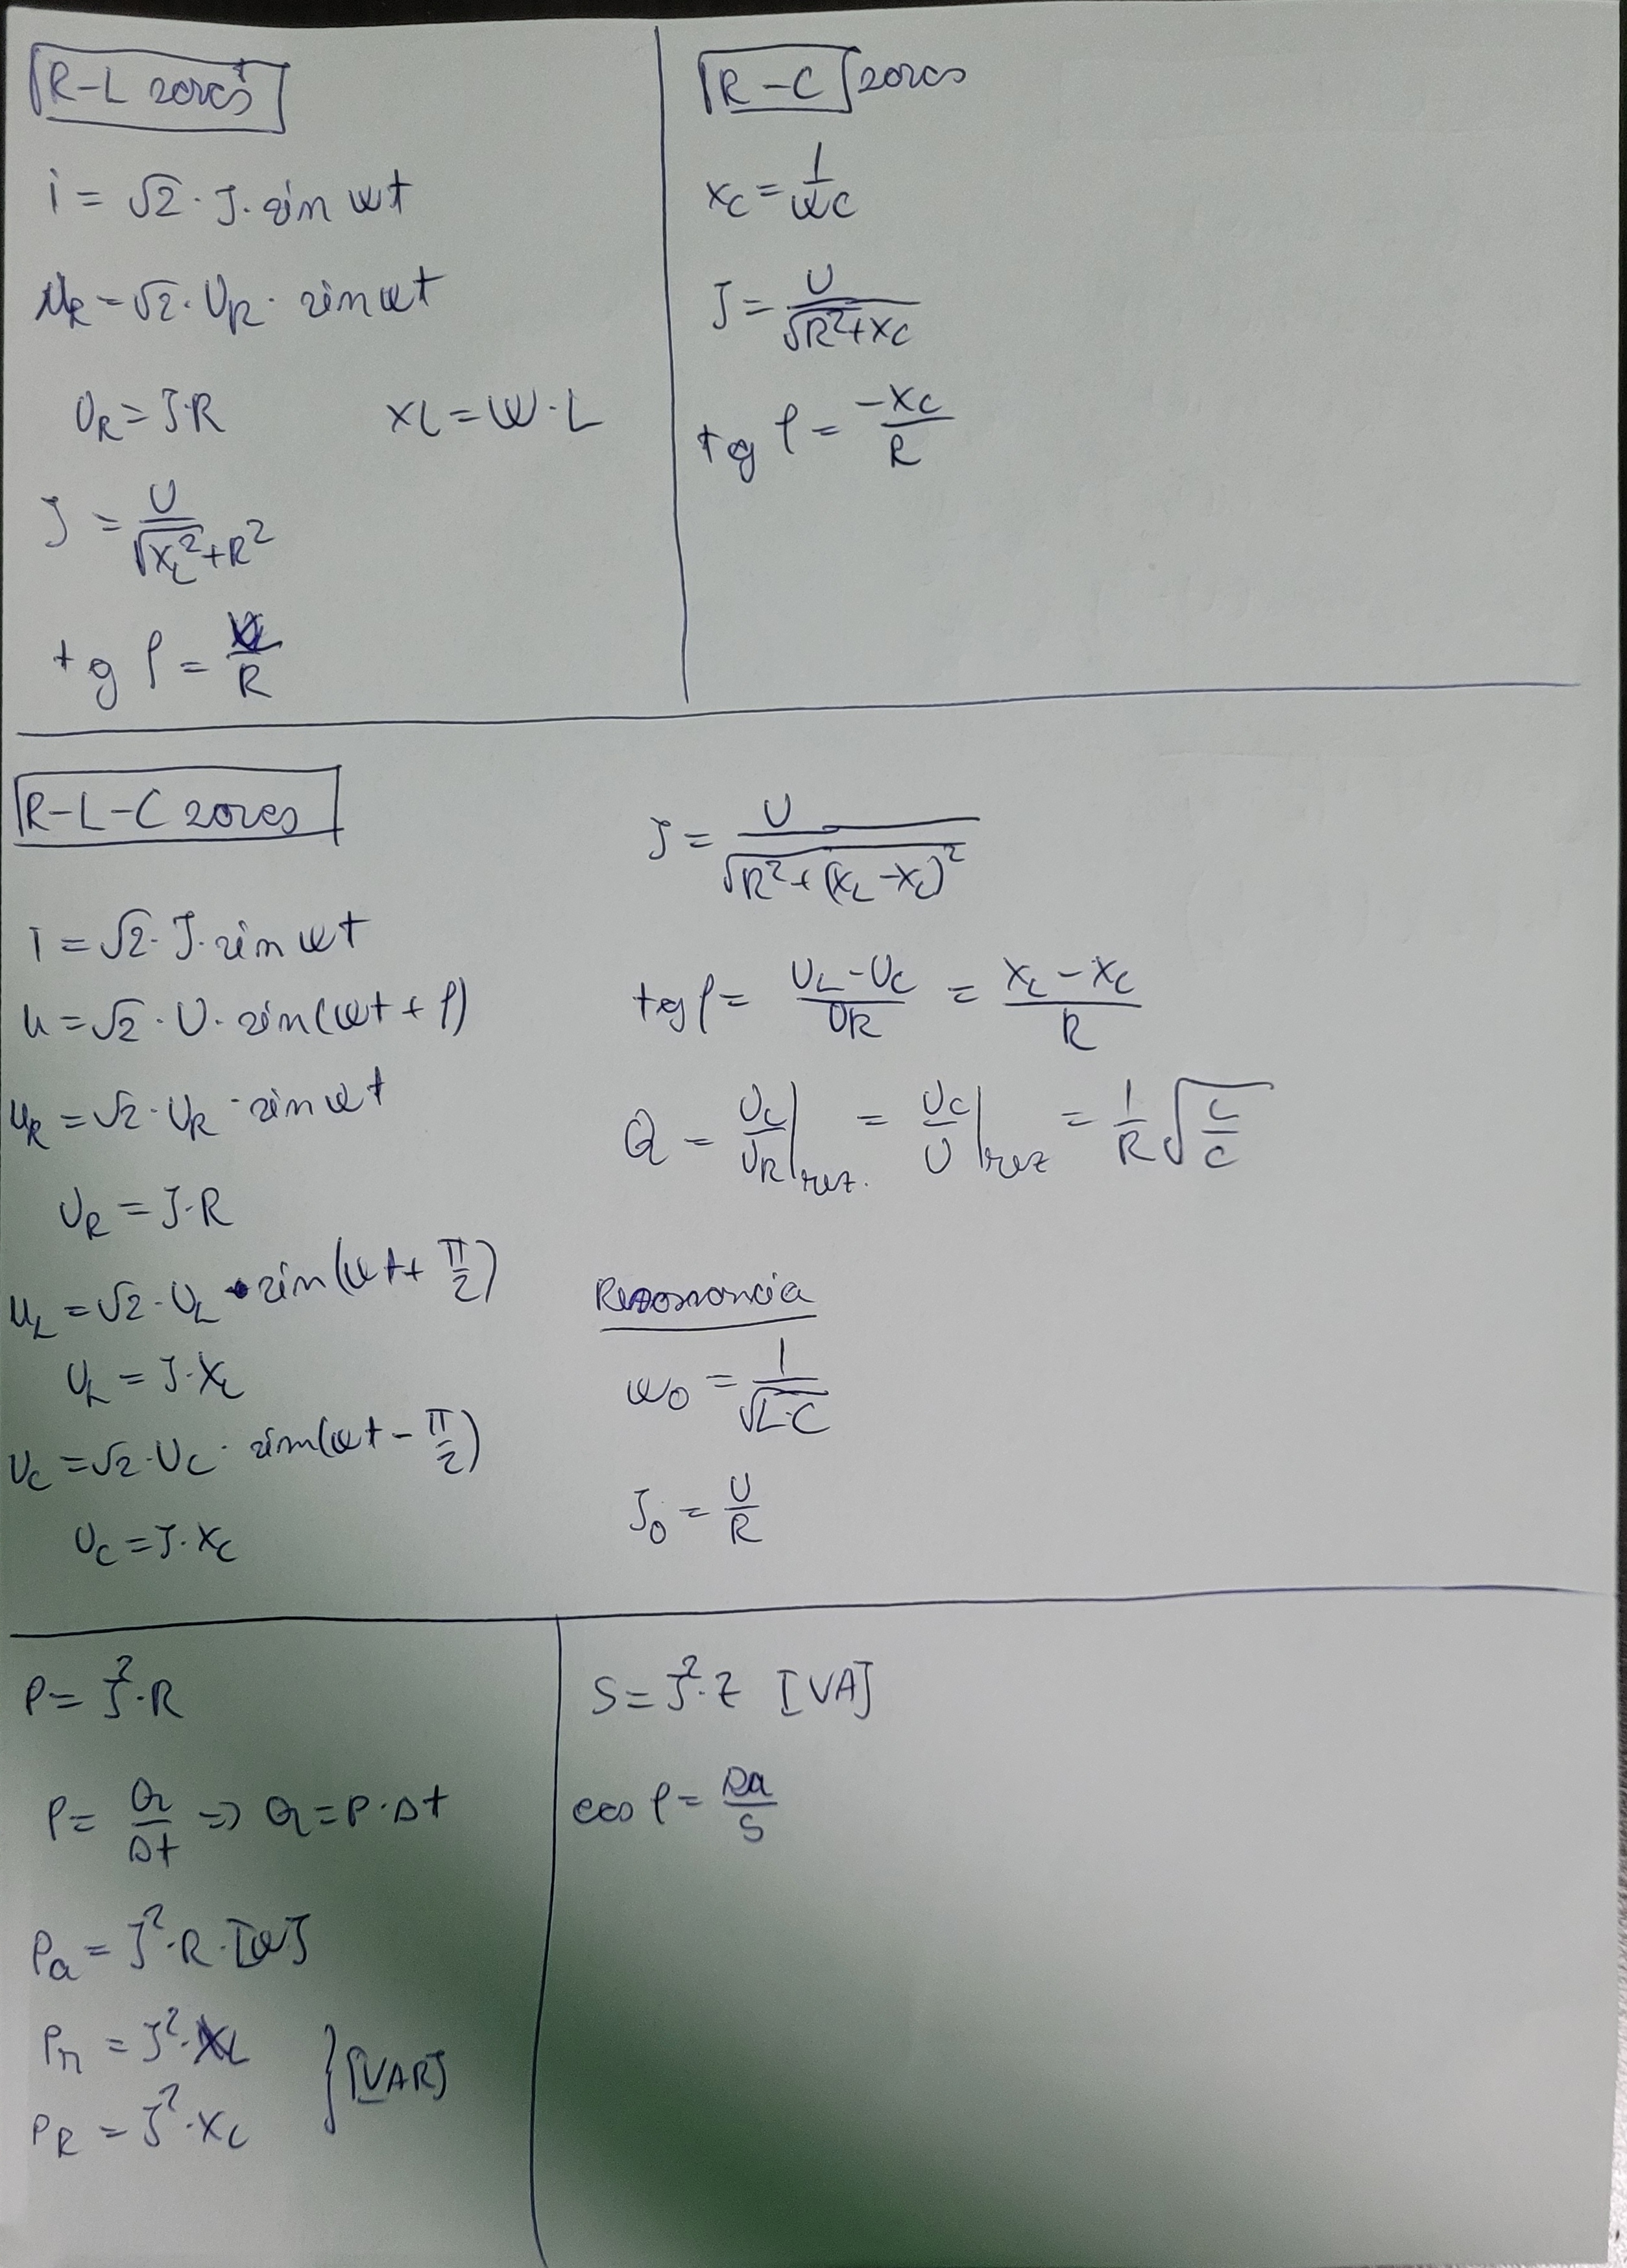 R-L soros
i = √2 · I · sin ωt
u_R = √2 · U_R · sin ωt
U_R = I·R    X_L = ω·L
I = U / √(X_L² + R²)
tg φ = X_L / R
R-C soros
X_C = 1 / ωC
I = U / √(R² + X_C)
tg φ = -X_C / R
R-L-C soros
i = √2 · I · sin ωt
u = √2 · U · sin(ωt + φ)
u_R = √2 · U_R · sin ωt
U_R = I·R
u_L = √2 · U_L · sin(ωt + π/2)
U_L = I·X_L
u_C = √2 · U_C · sin(ωt - π/2)
U_C = I·X_C
I = U / √(R² + (X_L - X_C)²)
tg φ = (U_L - U_C) / U_R = (X_L - X_C) / R
Q = U_C/U_R |rez. = U_C/U |rez = 1/R √(L/C)
Rezonancia
ω0 = 1 / √(L·C)
I_0 = U / R
P = I² · R
P = Q / Δt => Q = P · Δt
P_a = I² · R · [W]
P_r = I² · X_L
P_R = I² · X_C } [VAR]
S = I² · Z [VA]
cos φ = Pa / S